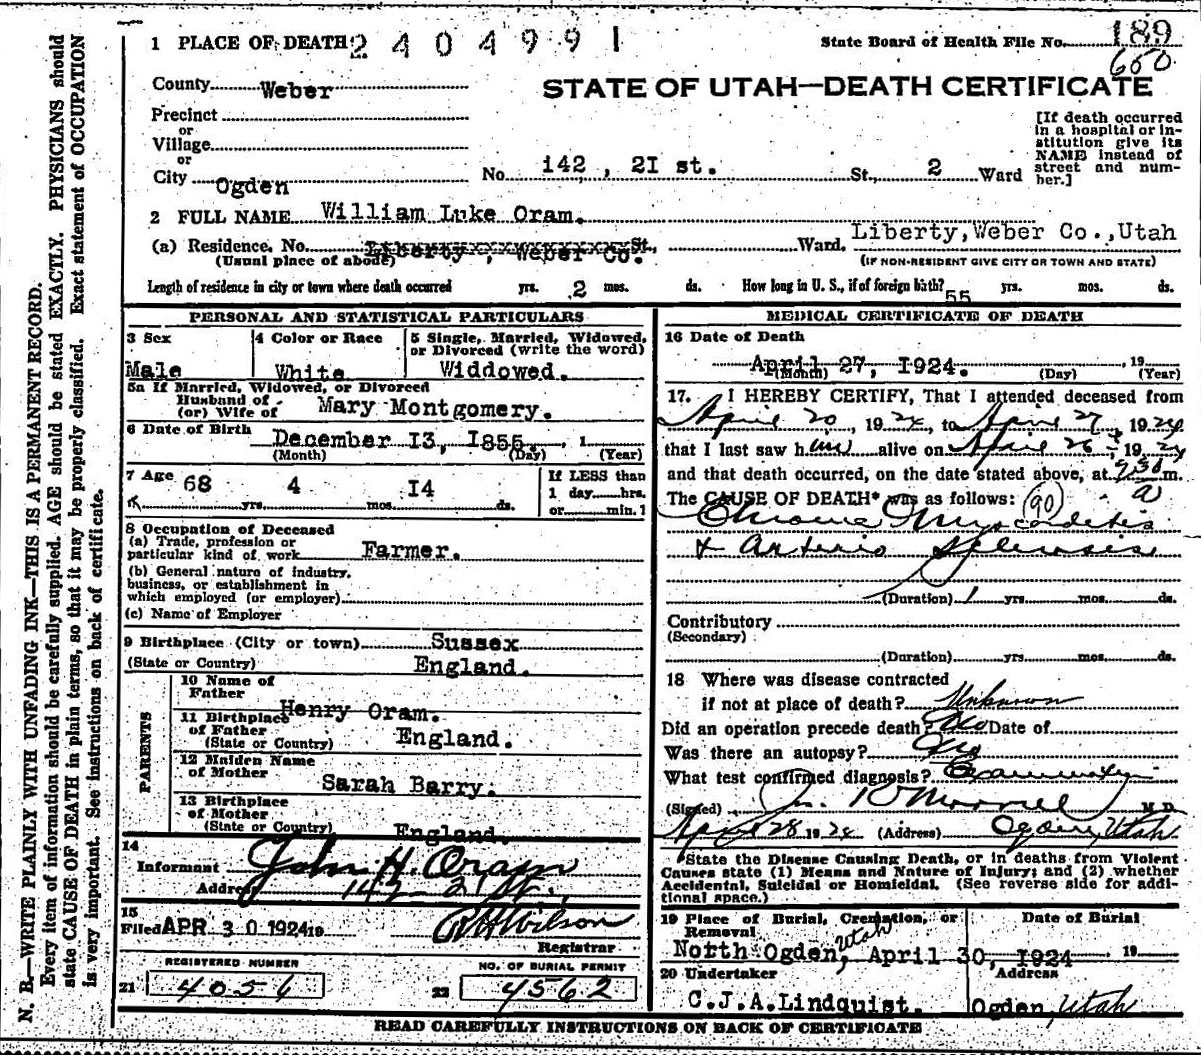 N. B.—WRITE PLAINLY WITH UNFADING INK—THIS IS A PERMANENT RECORD.
Every item of information should be carefully supplied. AGE should be stated EXACTLY. PHYSICIANS should
state CAUSE OF DEATH in plain terms, so that it may be properly classified. Exact statement of OCCUPATION
is very important. See instructions on back of certificate.
1 PLACE OF DEATH 2404991
State Board of Health File No. 189
650
County Weber
STATE OF UTAH—DEATH CERTIFICATE
Precinct
or
Village
or
City Ogden No. 142, 2I st. St., 2 Ward
[If death occurred
in a hospital or in-
stitution give its
NAME instead of
street and num-
ber.]
2 FULL NAME William Luke Oram.
(a) Residence. No. Liberty, Weber Co. St., Ward. Liberty, Weber Co., Utah
(Usual place of abode) (IF NON-RESIDENT GIVE CITY OR TOWN AND STATE)
Length of residence in city or town where death occurred yrs. 2 mos. ds. How long in U. S., if of foreign birth? 55 yrs. mos. ds.
PERSONAL AND STATISTICAL PARTICULARS
3 Sex 4 Color or Race 5 Single, Married, Widowed,
or Divorced (write the word)
Male White Widdowed.
5a If Married, Widowed, or Divorced
Husband of
(or) Wife of Mary Montgomery.
6 Date of Birth December I3, I855, 1
(Month) (Day) (Year)
7 Age 68 yrs. 4 mos. I4 ds.
If LESS than
1 day hrs.
or min.?
8 Occupation of Deceased
(a) Trade, profession or
particular kind of work Farmer.
(b) General nature of industry,
business, or establishment in
which employed (or employer)
(c) Name of Employer
9 Birthplace (City or town) Sussex
(State or Country) England.
PARENTS
10 Name of
Father Henry Oram.
11 Birthplace
of Father
(State or Country) England.
12 Maiden Name
of Mother Sarah Barry.
13 Birthplace
of Mother
(State or Country) England.
14
Informant John H. Oram
Address 142 - 21 St.
15
Filed APR 30 1924 19 Wilson
Registrar
REGISTERED NUMBER NO. OF BURIAL PERMIT
21 4056 22 4562
MEDICAL CERTIFICATE OF DEATH
16 Date of Death
April 27, I924. 19
(Month) (Day) (Year)
17. I HEREBY CERTIFY, That I attended deceased from
April 20, 1924, to April 27, 1924
that I last saw him alive on April 26, 1924
and that death occurred, on the date stated above, at 9:30 a m.
The CAUSE OF DEATH* was as follows: (90)
Chronic Myocarditis
+ Arterio Sclerosis
(Duration) 1 yrs. mos. ds.
Contributory
(Secondary)
(Duration) yrs. mos. ds.
18 Where was disease contracted
if not at place of death? Unknown
Did an operation precede death? No Date of
Was there an autopsy? No
What test confirmed diagnosis? Examination
(Signed) Jos. R Morrell M.D.
April 28 1924 (Address) Ogden, Utah.
*State the Disease Causing Death, or in deaths from Violent
Causes state (1) Means and Nature of Injury; and (2) whether
Accidental, Suicidal or Homicidal. (See reverse side for addi-
tional space.)
19 Place of Burial, Cremation, or
Removal Date of Burial
North Ogden, Utah April 30, I924 19
20 Undertaker Address
C.J.A.Lindquist. Ogden, Utah
READ CAREFULLY INSTRUCTIONS ON BACK OF CERTIFICATE